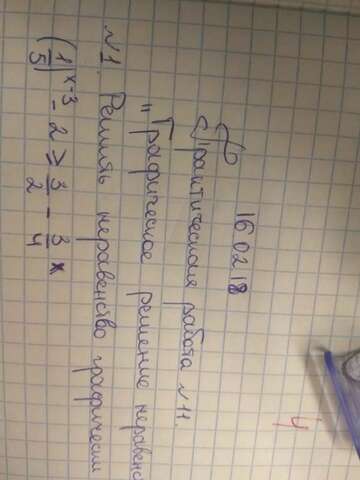 16 02 18
Практическая работа №11.
"Графическое решение неравенс
№1. Решить неравенство графически
(1/5)^x-3 - 2 ≥ 3/2 - 3/4 x